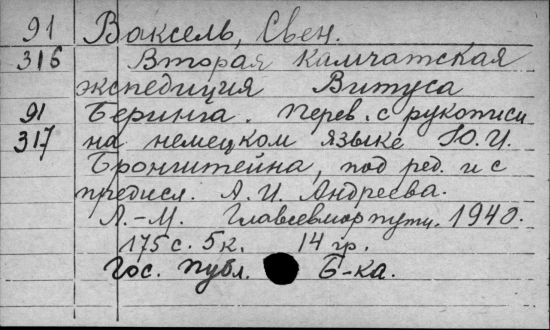 91 Ваксель, Свен.
316 Вторая Камчатская
экспедиция Витуса
91 Беринга. Перев. с рукописи
317 на немецком языке Ю.И.
Бронштейна, под ред. и с
предисл. А.И. Андреева.
Л.-М. Главсевморпути. 1940.
175 с. 5 к. 14 гр.
Гос. Публ. Б-ка.